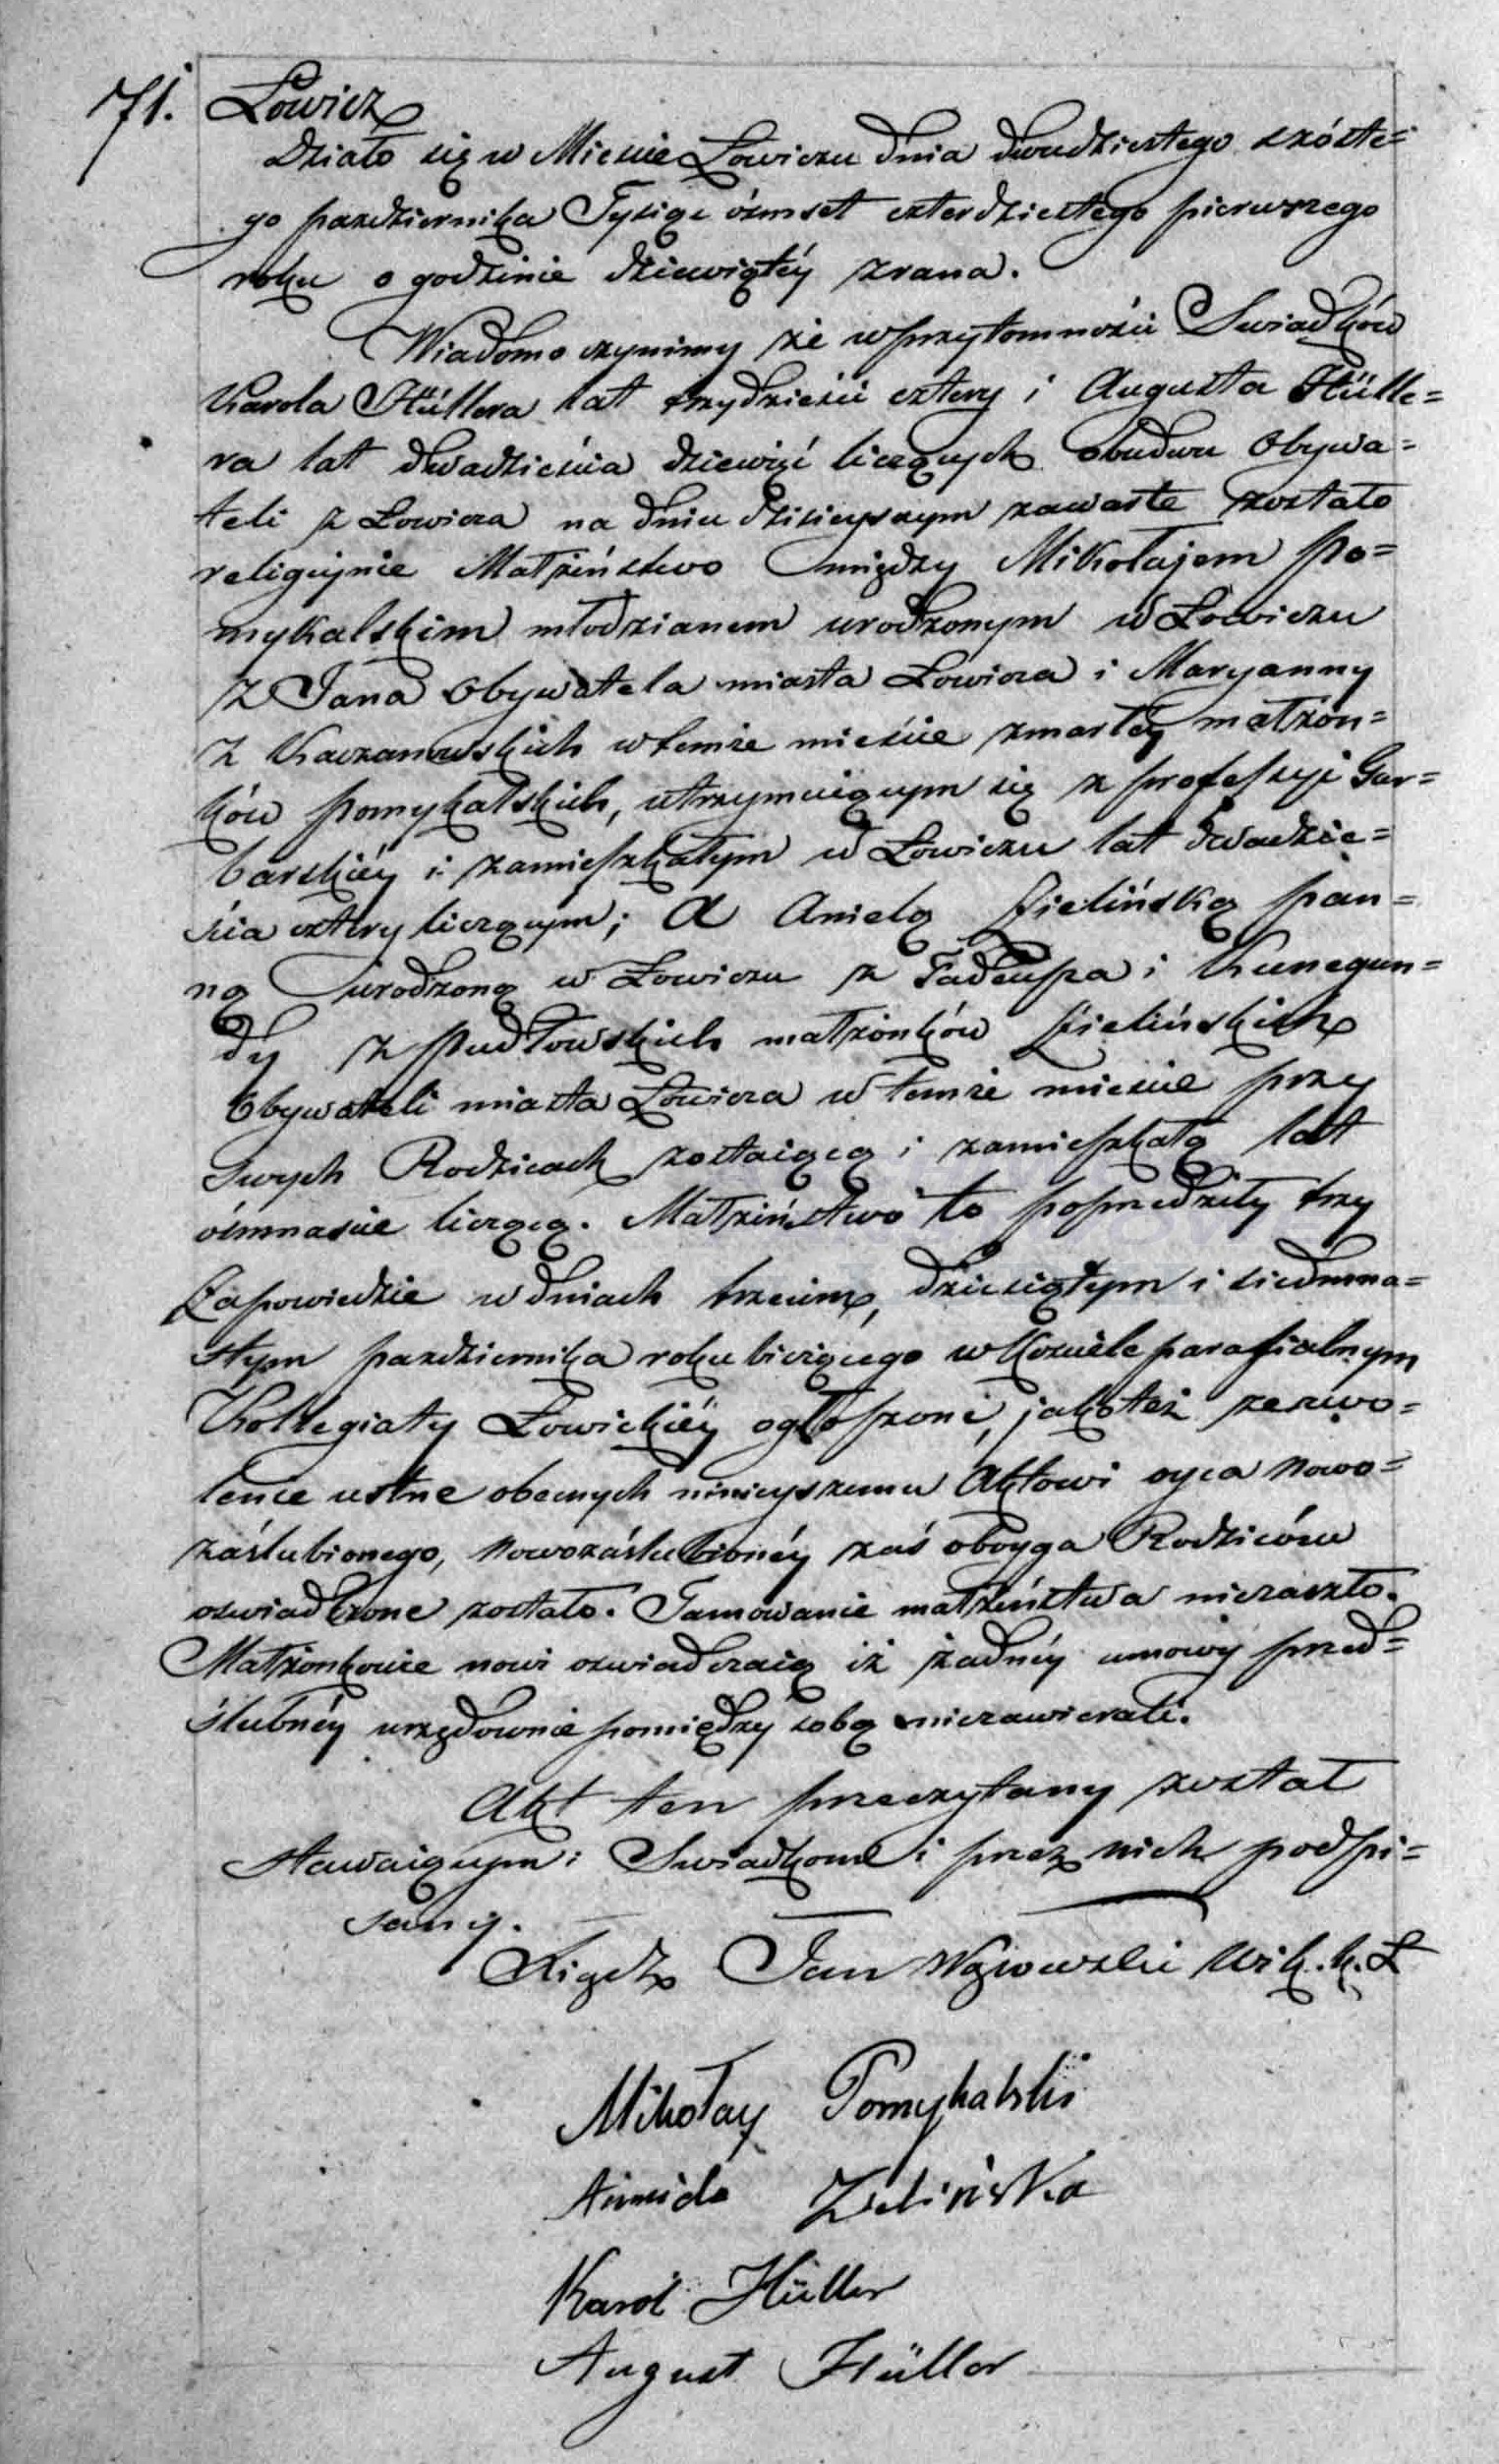 71. Łowicz
Działo się w Mieście Łowiczu dnia dwudziestego szóste=
go pazdziernika Tysiąc ośmset czterdziestego pierwszego
roku o godzinie dziewiątéy zrana.
Wiadomo czynimy że w przytomności Swiadków
Karola Hüllera lat trzydzieści cztery i Augusta Hülle=
ra lat dwadzieścia dziewięć liczących obudwu Obywa=
teli z Łowicza na dniu dzisieyszym zawarte zostało
religijnie Małżeństwo między Mikołajem Po=
mykalskim młodzianem urodzonym w Łowiczu
z Jana Obywatela miasta Łowicza i Maryanny
z Kaczanowskich w temże mieście zmarłey małżon=
ków Pomykalskich, utrzymuiącym się z professyi Gar=
barskiéy i zamieszkałym w Łowiczu lat dwadzie=
ścia cztery liczącym; a Anielą Zielińską pan=
ną urodzoną w Łowiczu z Tadeusza i Kunegun=
dy z Pudłowskich małżonków Zielińskich
Obywateli miasta Łowicza w temże mieście przy
swych Rodzicach zostaiącą i zamieszkałą lat
ośmnaście liczącą. Małżeństwo to poprzedziły trzy
Zapowiedzie w dniach trzecim, dziesiątym i siedmna=
stym pazdziernika roku bieżącego w Kościele parafialnym
Kollegiaty Łowickiéy ogłoszone, jakoteż zezwo=
lenie ustne obecnych ninieyszemu Aktowi oyca Nowo=
zaślubionego, Nowozaślubionéy zaś oboyga Rodziców
oswiadczone zostało. Tamowanie małżeństwa niezaszło.
Małżonkowie nowi oswiadczaią iż żadnéy umowy przed=
ślubnéy urzędownie pomiędzy sobą niezawierali.
Akt ten przeczytany został
stawaiącym i Swiadkom i przez nich podpi=
sany.
Xiądz Jan Wik. k. Ł
Mikołay Pomykalski
Zielińska
Karol Hüller
August Hüller